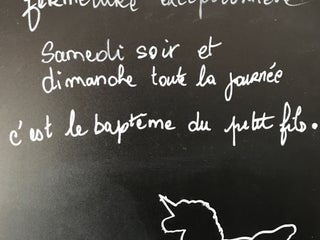 fermeture exceptionnelle
Samedi soir et
dimanche toute la journée
c'est le baptême du petit fils.